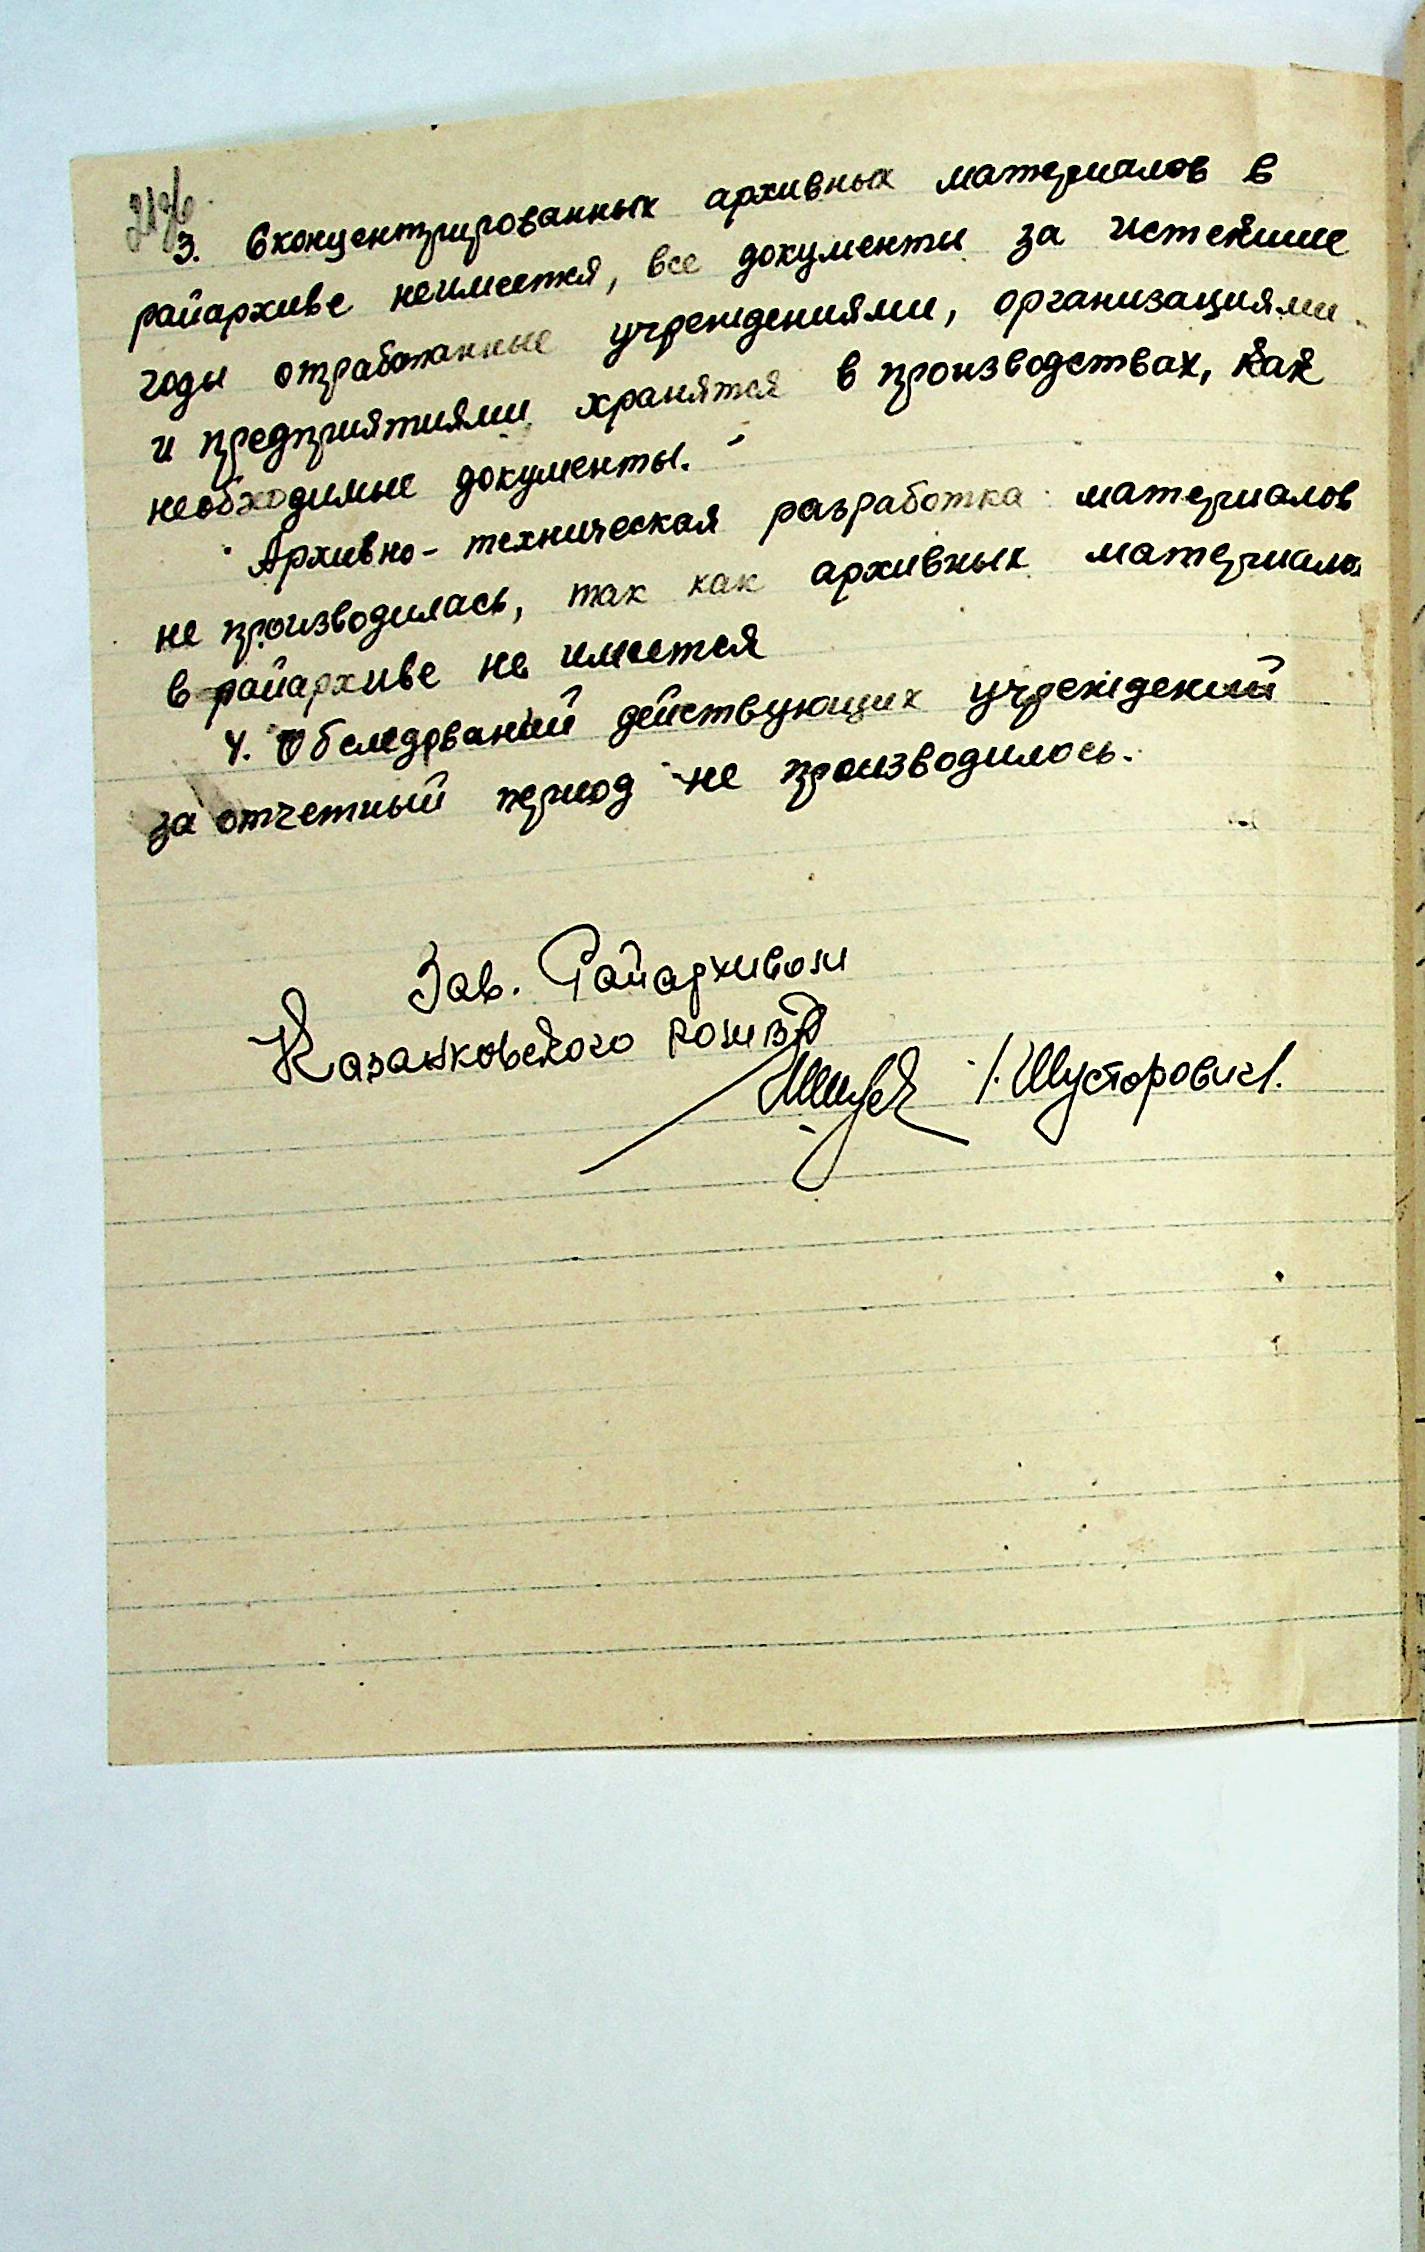 3. Вконцентрированных архивных материалов в
райархиве неимеется, все документы за истекшие
годы отработанные учреждениями, организациями
и предприятиями хранятся в производствах, как
необходимые документы.
Архивно-техническая разработка материалов
не производилась, так как архивных материалов
в райархиве не имеется
4. Обследований действующих учреждений
за отчетный период не производилось.
Зав. Райархивом
Казанковского
/. Шусторович/.